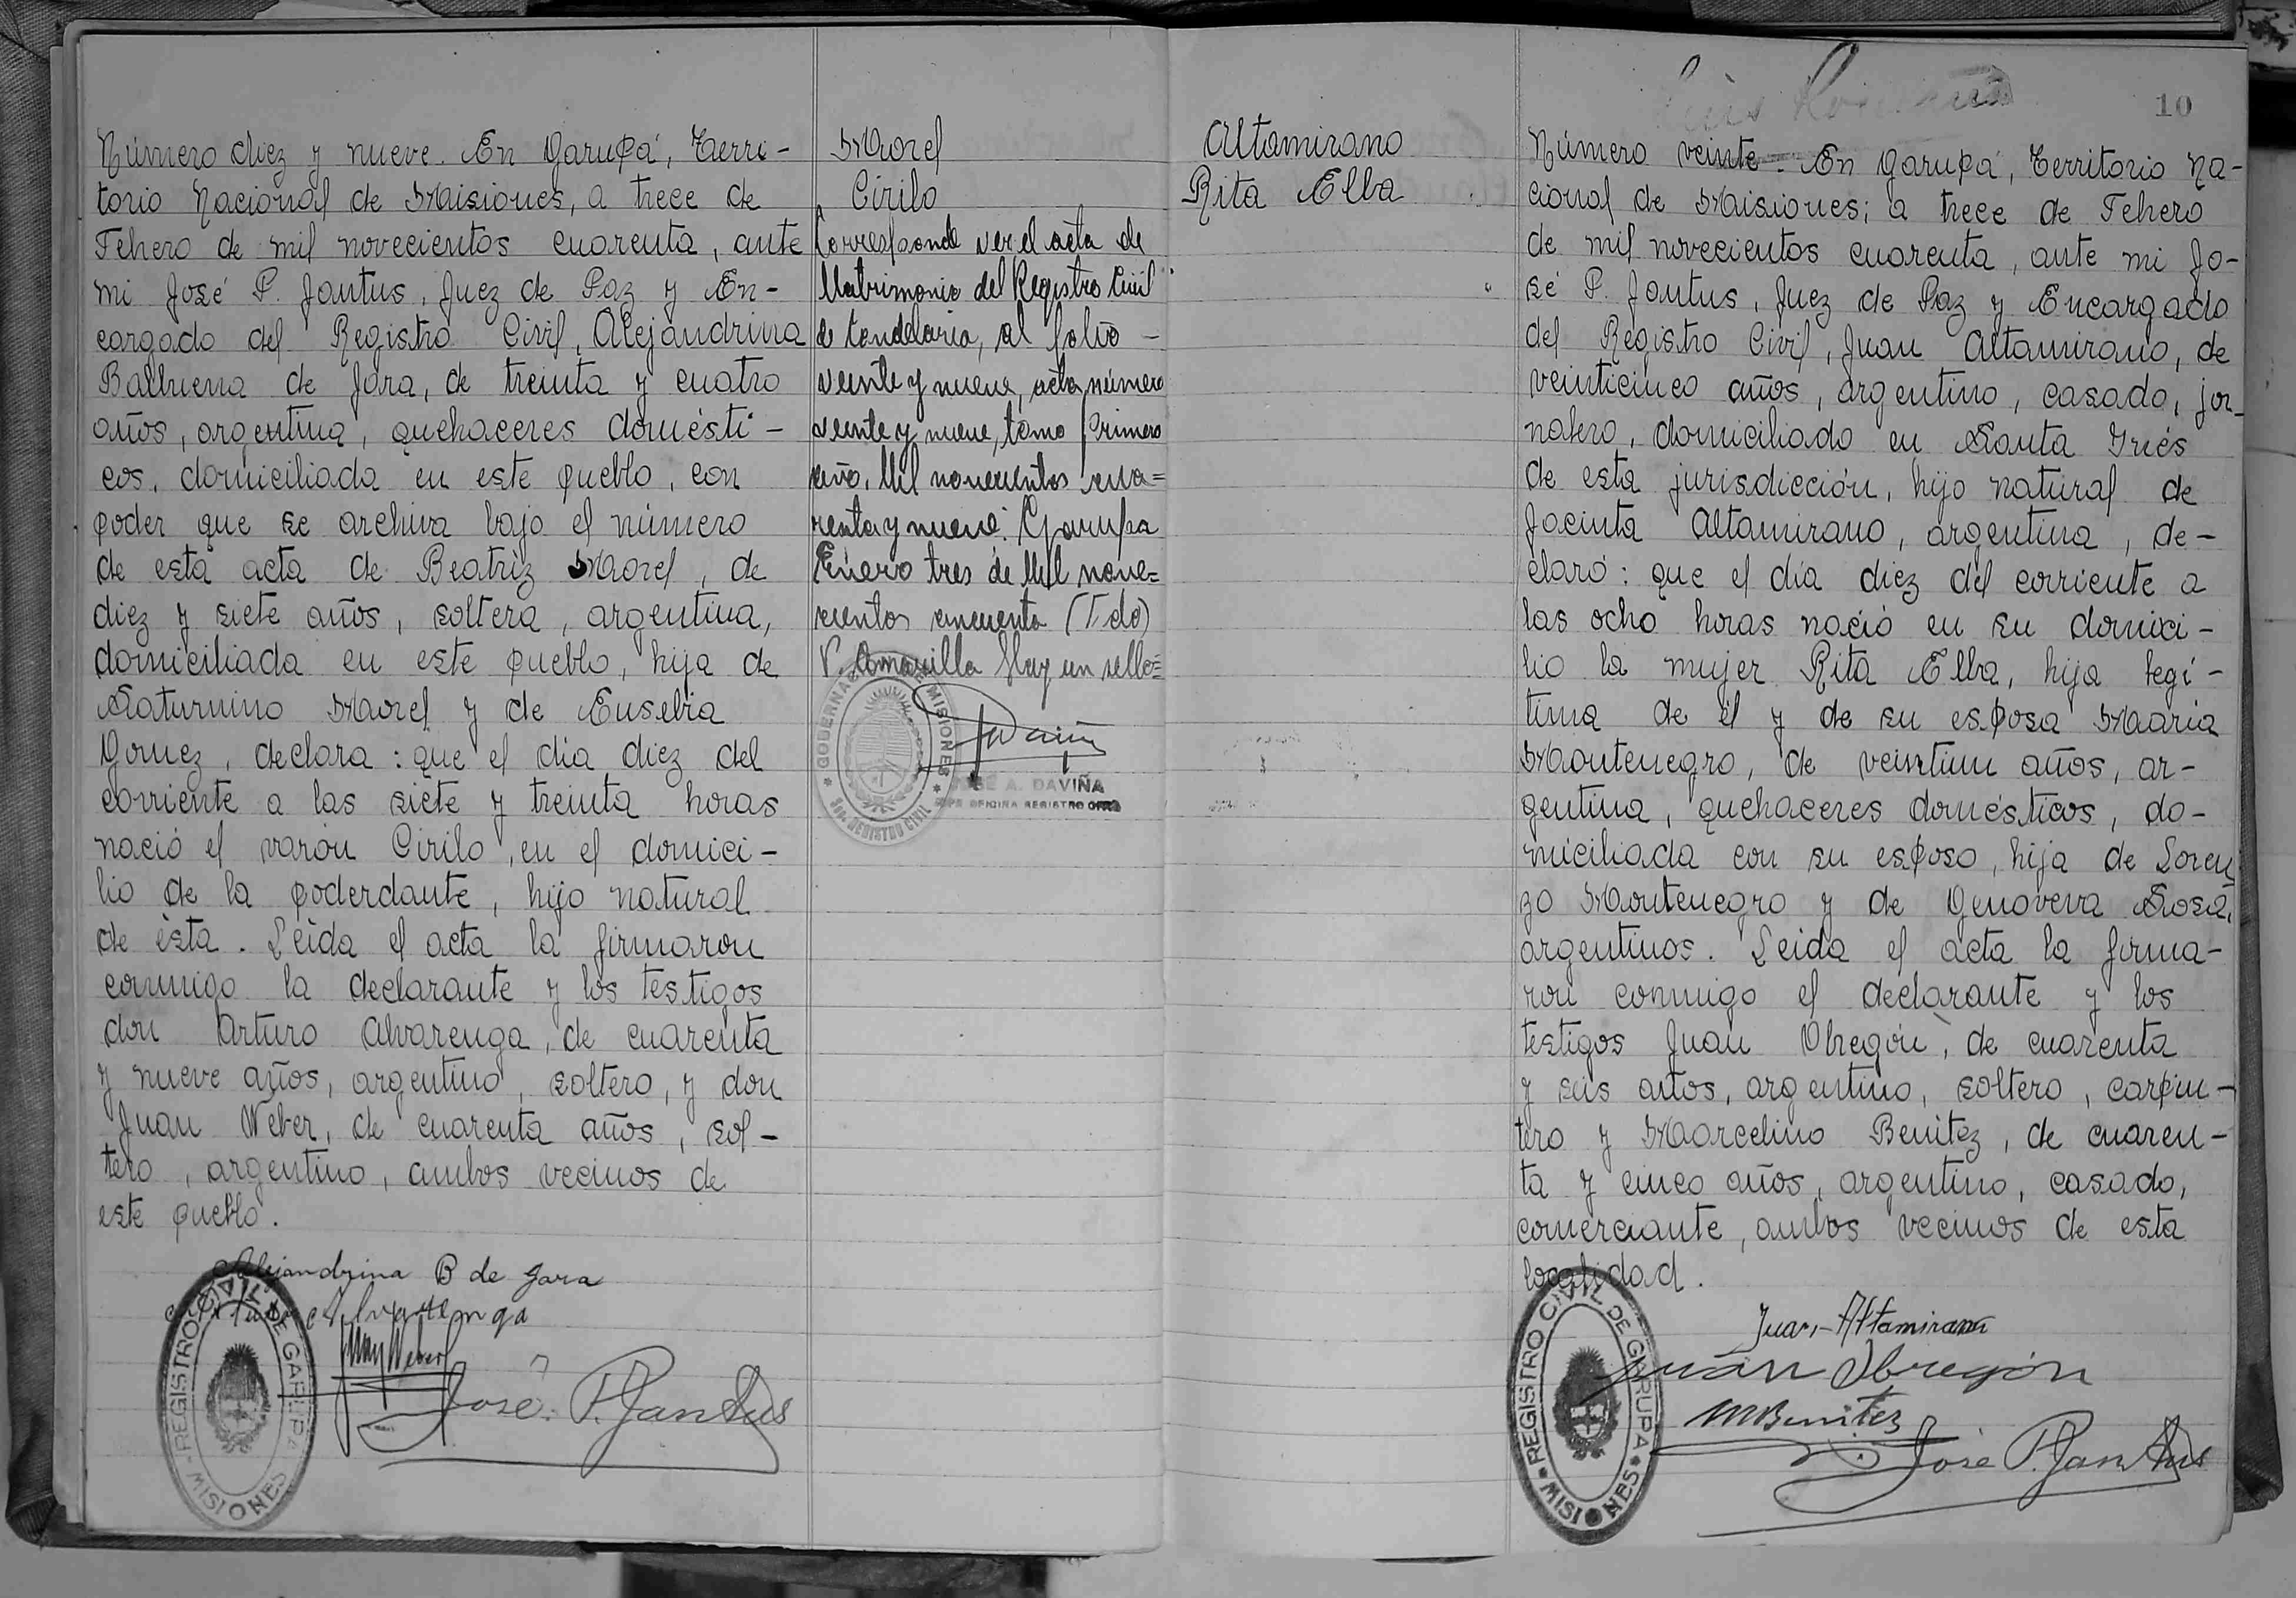 Número diez y nueve. En Garupá, Terri-
torio Nacional de Misiones, a trece de
Febrero de mil novecientos cuarenta, ante
mi José P. Jantus, Juez de Paz y En-
cargado del Registro Civil, Alejandrina
Balbuena de Jara, de treinta y cuatro
años, argentina, quehaceres domésti-
cos, domiciliada en este pueblo, con
poder que se archiva bajo el número
de esta acta de Beatriz Morel, de
diez y siete años, soltera, argentina,
domiciliada en este pueblo, hija de
Saturnino Morel y de Eusebia
Gomez, declara: que el día diez del
corriente a las siete y treinta horas
nació el varón Cirilo, en el domici-
lio de la poderdante, hijo natural
de ésta. Leida el acta la firmaron
conmigo la declarante y los testigos
don Arturo Alvarenga, de cuarenta
y nueve años, argentino, soltero, y don
Juan Weber, de cuarenta años, sol-
tero, argentino, ambos vecinos de
este pueblo.
Alejandrina B de Jara
Arturo Alvarenga
Juan Weber
José P. Jantus
REGISTRO CIVIL DE GARUPA
MISIONES
Morel
Cirilo
Corresponde ver el acta de
Matrimonio del Registro Civil
de Candelaria, al folio -
veinte y nueve, acta número
veinte y nueve, tomo Primero
año, Mil novecientos cua=
renta y nueve. Garupa
Enero tres de Mil nove=
cientos cincuenta (Fdo)
V. Amarilla Hay un sello=
GOBERNACION MISIONES
REGISTRO CIVIL
JOSÉ A. DAVIÑA
JEFE OFICINA REGISTRO CIVIL
Altamirano
Rita Elba
Luis
10
Número veinte. En Garupá, Territorio Na-
cional de Misiones; a trece de Febrero
de mil novecientos cuarenta, ante mi Jo-
sé P. Jantus, Juez de Paz y Encargado
del Registro Civil, Juan Altamirano, de
veinticinco años, argentino, casado, jor-
nalero, domiciliado en Santa Inés
de esta jurisdicción, hijo natural de
Jacinta Altamirano, argentina, de-
claró: que el día diez del corriente a
las ocho horas nació en su domici-
lio la mujer Rita Elba, hija legí-
tima de él y de su esposa Maria
Montenegro, de veintiun años, ar-
gentina, quehaceres domésticos, do-
miciliada con su esposo, hija de Loren
zo Montenegro y de Genoveva Sosa,
argentinos. Leida el acta la firma-
ron conmigo el declarante y los
testigos Juan Obregón, de cuarenta
y seis años, argentino, soltero, carpin-
tero y Marcelino Benitez, de cuaren-
ta y cinco años, argentino, casado,
comerciante, ambos vecinos de esta
localidad.
Juan Altamirano
Juan Obregón
M Benitez
José P. Jantus
REGISTRO CIVIL DE GARUPA
MISIONES